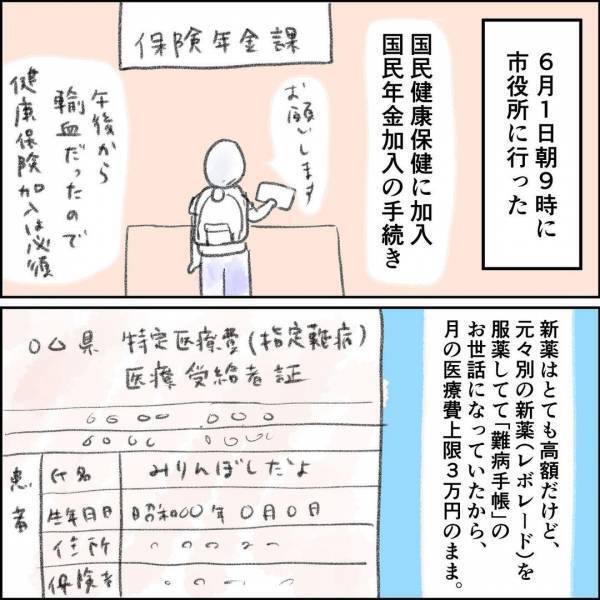 ６月１日朝９時に
市役所に行った
国民健康保健に加入
国民年金加入の手続き
保険年金課
お願いします
午後から
輸血だったので
健康保険加入は必須
新薬はとても高額だけど、
元々別の新薬（レボレード）を
服薬してて「難病手帳」の
お世話になっていたから、
月の医療費上限３万円のまま。
○△県 特定医療費(指定難病)
医療受給者証
患者
氏名 みりんぼしだよ
生年月日 昭和00年0月0日
住所
保険者